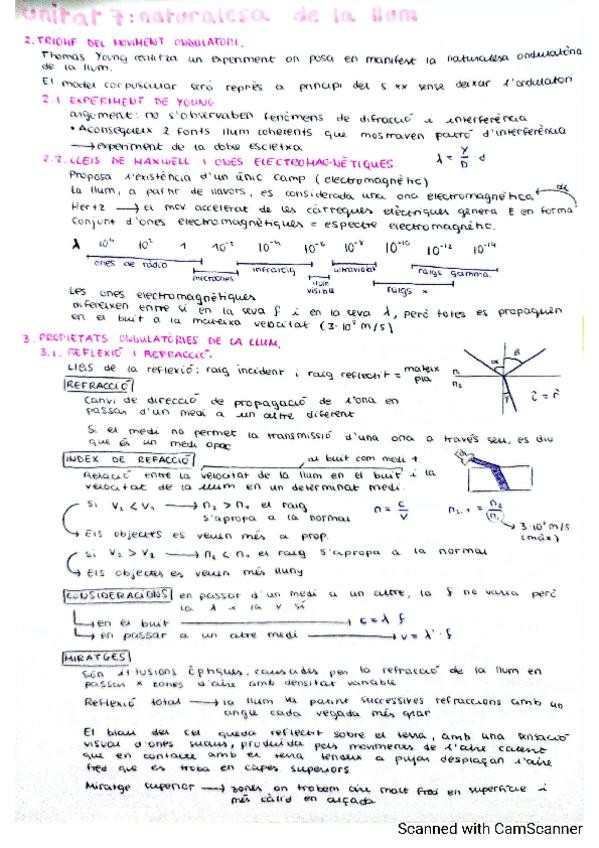 Unitat 7: naturalesa de la llum
2. TRIOMF DEL MOVIMENT ONDULATORI.
Thomas Young realitza un experiment on posa en manifest la naturalesa ondulatòria
de la llum.
El model corpuscular serà reprès a principi del s. xx sense deixar l'ondulatori
2.1 EXPERIMENT DE YOUNG
argument: no s'observaben fenòmens de difracció i interferència
• Aconsegueix 2 fonts llum coherents que mostraven patró d'interferència
→ experiment de la doble escletxa
λ = Y/D · d
2.2. LLEIS DE MAXWELL I ONES ELECTROMAGNÈTIQUES
Proposa l'existència d'un únic camp (electromagnètic)
la llum, a partir de llavors, es considerada una ona electromagnètica
Hertz → el mov accelerat de les càrregues elèctriques genera E en forma de
Conjunt d'ones electromagnètiques = espectre electromagnètic.
λ 10⁴ 10² 1 10⁻² 10⁻⁴ 10⁻⁶ 10⁻⁸ 10⁻¹⁰ 10⁻¹² 10⁻¹⁴
ones de ràdio
microones
infraroig
llum visible
ultraviolat
raigs x
raigs gamma
Les ones electromagnètiques
difereixen entre si en la seva f i en la seva λ, però totes es propaguen
en el buit a la mateixa velocitat (3·10⁸ m/s)
3. PROPIETATS ONDULATÒRIES DE LA LLUM.
3.1. REFLEXIÓ I REFRACCIÓ.
LLEIS de la reflexió: raig incident i raig reflectit = mateix
pla
n₁
n₂
α
β
γ
î = r̂
REFRACCIÓ
Canvi de direcció de propagació de l'ona en
passar d'un medi a un altre diferent
Si el medi no permet la transmissió d'una ona a través seu, es diu
que és un medi opac
ÍNDEX DE REFACCIÓ
al buit com medi 1.
Relació entre la velocitat de la llum en el buit i la
velocitat de la llum en un determinat medi.
Si V₂ < V₁ → n₂ > n₁ el raig
s'apropa a la normal
n = c/v
n₂,₁ = n₂/n₁
→ 3·10⁸ m/s
(màx)
→ Els objectes es veuen més a prop.
Si V₂ > V₁ → n₂ < n₁ el raig s'apropa a la normal
→ Els objectes es veuen més lluny
CONSIDERACIONS en passar d'un medi a un altre, la f no varia però
la λ i la v sí
→ en el buit → c = λ f
→ en passar a un altre medi → v = λ' · f
MIRATGES
Són il·lusions òptiques, causades per la refracció de la llum en
passar x zones d'aire amb densitat variable
Reflexió total → la llum va patint successives refraccions amb un
angle cada vegada més gran
El blau del cel queda reflectit sobre el terra, amb una sensació
visual d'ones suaus, produïda pels moviments de l'aire calent
que en contacte amb el terra tendeix a pujar desplaçan l'aire
fred que es troba en capes superiors
Miratge superior → zones on trobem aire molt fred en superfície i
més càlid en alçada
Scanned with CamScanner